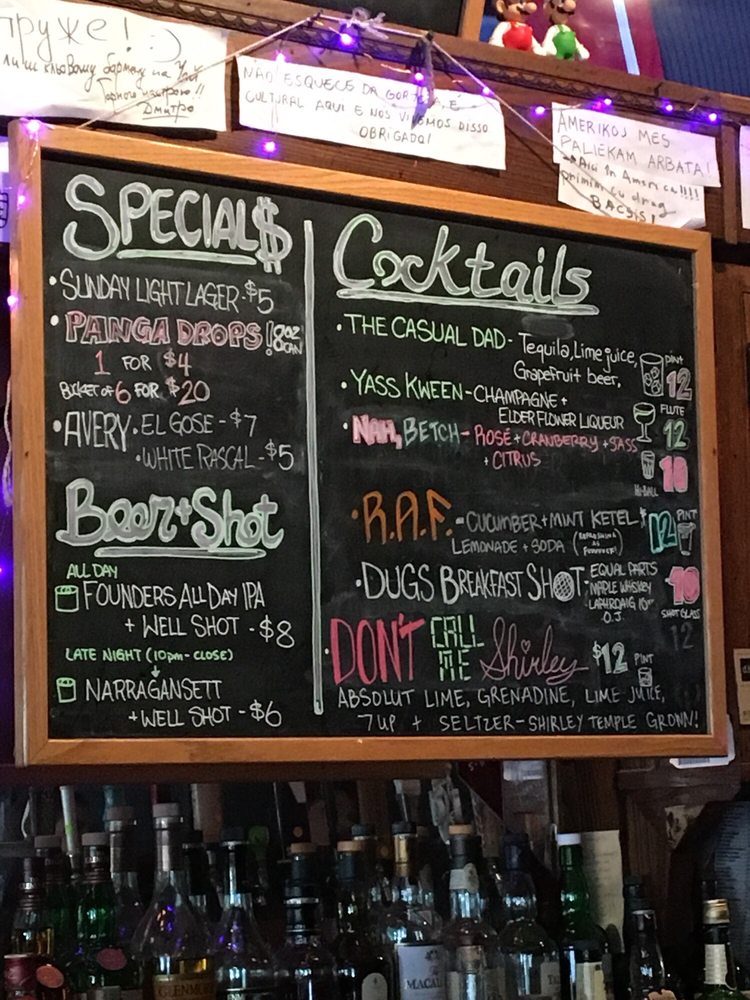 друже! :)
Горного центру!!
Дмитро
NÃO ESQUECE DA GORJETA, É
CULTURAL AQUI E NÓS VIVEMOS DISSO
OBRIGADO!
AMERIKOJ MES
PALIEKAM ARBATA!
Aici in America!!!!
primim cu drag
BACȘIȘ!
SPECIAL$
• SUNDAY LIGHT LAGER - $5
• PANGA DROPS! 8oz CAN
1 FOR $4
BUCKET of 6 FOR $20
• AVERY • EL GOSE - $7
• WHITE RASCAL - $5
Beer + Shot
ALL DAY
FOUNDERS ALL DAY IPA
+ WELL SHOT - $8
LATE NIGHT (10pm - CLOSE)
NARRAGANSETT
+ WELL SHOT - $6
Cocktails
• THE CASUAL DAD - Tequila, Lime juice,
Grapefruit beer. PINT 12
• YASS KWEEN - CHAMPAGNE +
ELDERFLOWER LIQUEUR FLUTE 12
• NAH, BETCH - ROSÉ + CRANBERRY + SASS
+ CITRUS HI-BALL 10
• R.A.F. - CUCUMBER + MINT KETEL $12 PINT
LEMONADE + SODA (REFRESHING AS FUUUUCK!)
• DUGS BREAKFAST SHOT - EQUAL PARTS
MAPLE WHISKEY
LAPHROAIG 10yr
O.J. 10 SHOT GLASS
12
• DON'T CALL ME Shirley $12 PINT
ABSOLUT LIME, GRENADINE, LIME JUICE,
7UP + SELTZER - SHIRLEY TEMPLE GROWN!
GLENMOR
MACAL